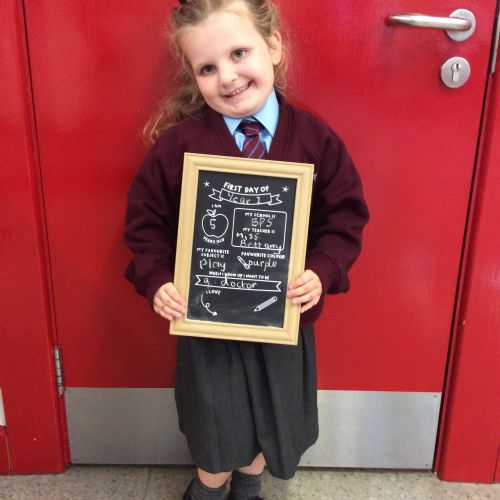 FIRST DAY OF
Year 1
I AM
5
YEARS OLD
MY SCHOOL IS
BPS
MY TEACHER IS
Miss
Brittany
MY FAVOURITE
SUBJECT IS
Play
FAVOURITE COLOUR
purple
WHEN I GROW UP I WANT TO BE
a doctor
I LOVE